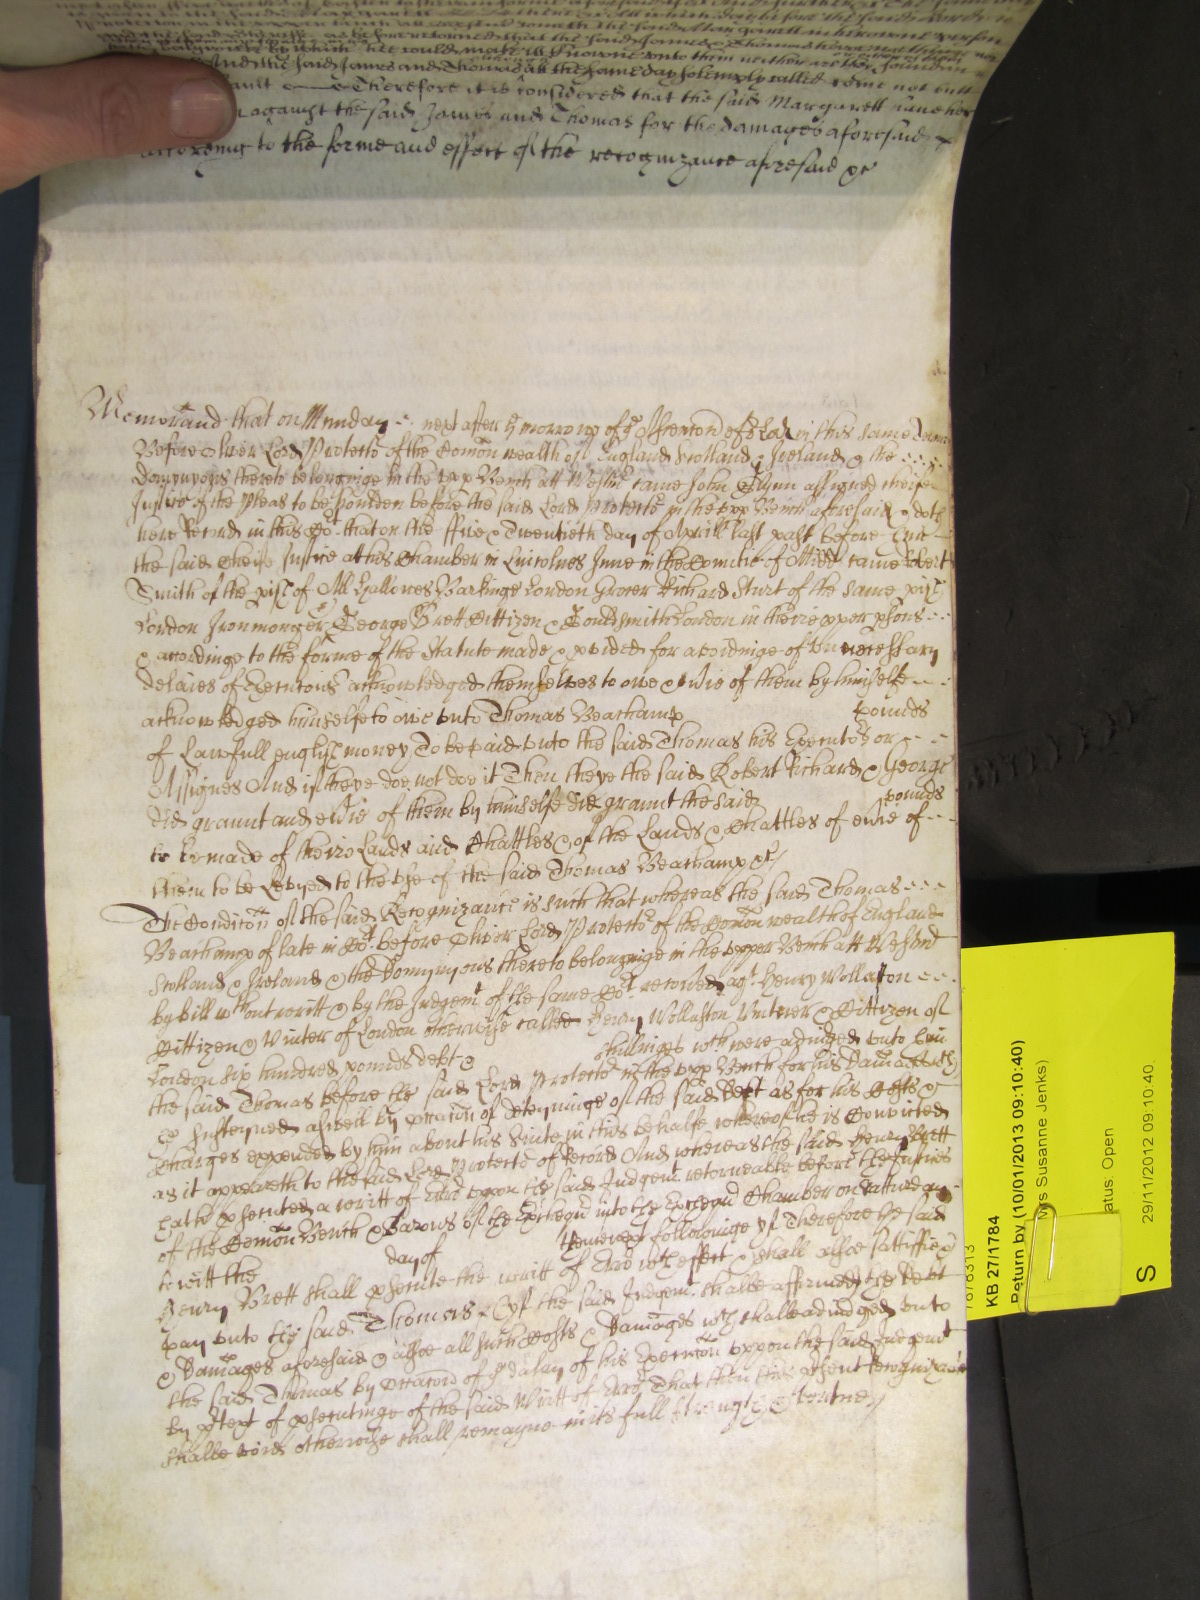 and the said James and Thomas att the same day solempnly called came not but
Therefore it is considered that the said Margarett have her
against the said James and Thomas for the damages aforesaid &
according to the forme and effect of the recognizance aforesaid &c
Memorand that on Munday next after ye morrow of ye Assencon of in this same Terme
Before Oliver Lord Protector of the Comon wealth of England Scotland & Ireland & the
Domynyons thereto belonginge In the upp Bench att Westmr came John Glynn assigned cheife
Justice of the Pleas to be houlden before the said Lord Protector in the upp Bench aforesaid & doth
here Record in this Cot that on the ffive & Twentieth day of Aprill last past before him
the said Cheife Justice at his Chamber in Lincolnes Inne in the Countie of Midd came Robert
Smith of the pish of All Hallowes Barkinge London Grocer Richard Sturt of the same pish
London Ironmonger & George Brett Cittizen & Gouldsmith London in theire pper psons
& accordinge to the forme of the Statute made & pvided for avoidinge of unnecessary
delaies of Execucons acknowledged themselves to owe & evie of them by himselfe
acknowledged himselfe to owe unto Thomas Beachamp pounds
of Lawfull english money To be paid unto the said Thomas his Executors or
Assignes And if theye doe not doe it Then theye the said Robert Richard & George
did graunt and evie of them by himselfe did graunt the said pounds
to be made of theire Lands and Chattles & of the Lands & Chattles of evie of
them to be Levyed to the use of the said Thomas Beachamp &c
The Condicon of the said Recognizance is such that whereas the said Thomas
Beachamp of late in Cot before Oliver Lord Protector of the Comon wealth of England
Scotland & Ireland & the Domynyons thereto belonginge in the upper Bench att Westmr
by bill wthout writt & by the Judgemt of the same Cot recovered agt Henry Wollaston
Cittizen & Vinter of London otherwise called Henry Wollaston Vinterer & Cittizen of
London six hundred pounds debt & shillinges wch were adiudged unto him
the said Thomas before the said Lord Protector in the upp Bench for his Damages wch
he susteyned aswell by occacon of deteyninge of the said Debt as for his Costs &
Charges expended by him about his Suite in this behalfe whereof he is Convicted
as it appeareth to the said Lord Protector of Record And whereas the said Henry Brett
hath psecuted a writt of Error uppon the said Judgemt retorneable before the Justices
of the Comon Bench & Barons of the Excheqr into the Excheqr Chamber on Satturday
to witt the day of then next followinge yf Therefore the said
Henry Brett shall psecute the writt of Error wth effect & shall alsoe sattisfie &
pay unto the said Thomas Yf the said Judgemt shalbe affirmed the Debt
& Damages aforesaid & alsoe all such Costs & Damages wch shalbe adiudged unto
the said Thomas by occacon of ye delay of his Execucon uppon the said Judgemt
by ptext of psecutinge of the said Writt of Error That then this psent Recognizance
shalbe void otherwise shall remayne in its full strength & vertue
KB 27/1784
Return by (10/01/2013 09:10:40)
Mrs Susanne Jenks)
atus: Open
29/11/2012 09:10:40
S